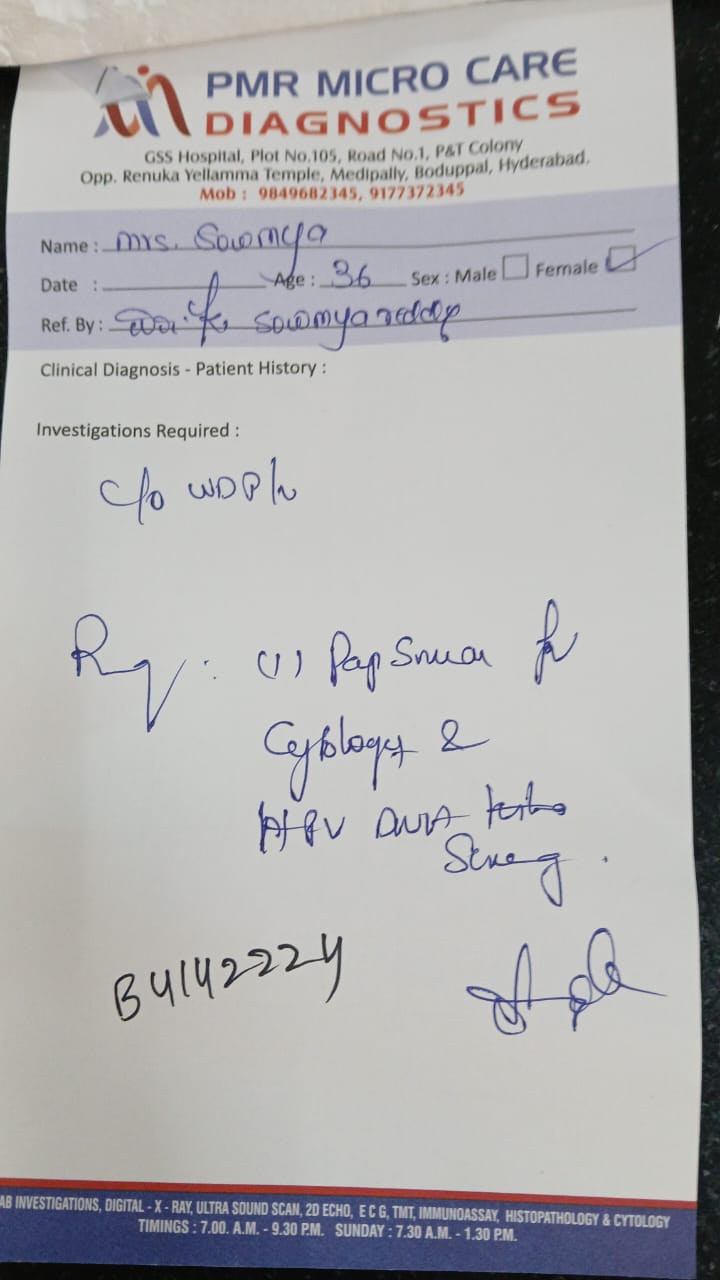 PMR MICRO CARE
DIAGNOSTICS
GSS Hospital, Plot No.105, Road No.1, P&T Colony
Opp. Renuka Yellamma Temple, Medipally, Boduppal, Hyderabad.
Mob : 9849682345, 9177372345
Name : Mrs. Sowmya
Date : Age : 36 Sex : Male Female
Ref. By : Dr. K Sowmya reddy
Clinical Diagnosis - Patient History :
Investigations Required :
c/o WDP/v
(1) Pap Smear for
Cytology &
HPV DNA
B4142224
AB INVESTIGATIONS, DIGITAL - X - RAY, ULTRA SOUND SCAN, 2D ECHO, E C G, TMT, IMMUNOASSAY, HISTOPATHOLOGY & CYTOLOGY
TIMINGS : 7.00. A.M. - 9.30 P.M. SUNDAY : 7.30 A.M. - 1.30 P.M.